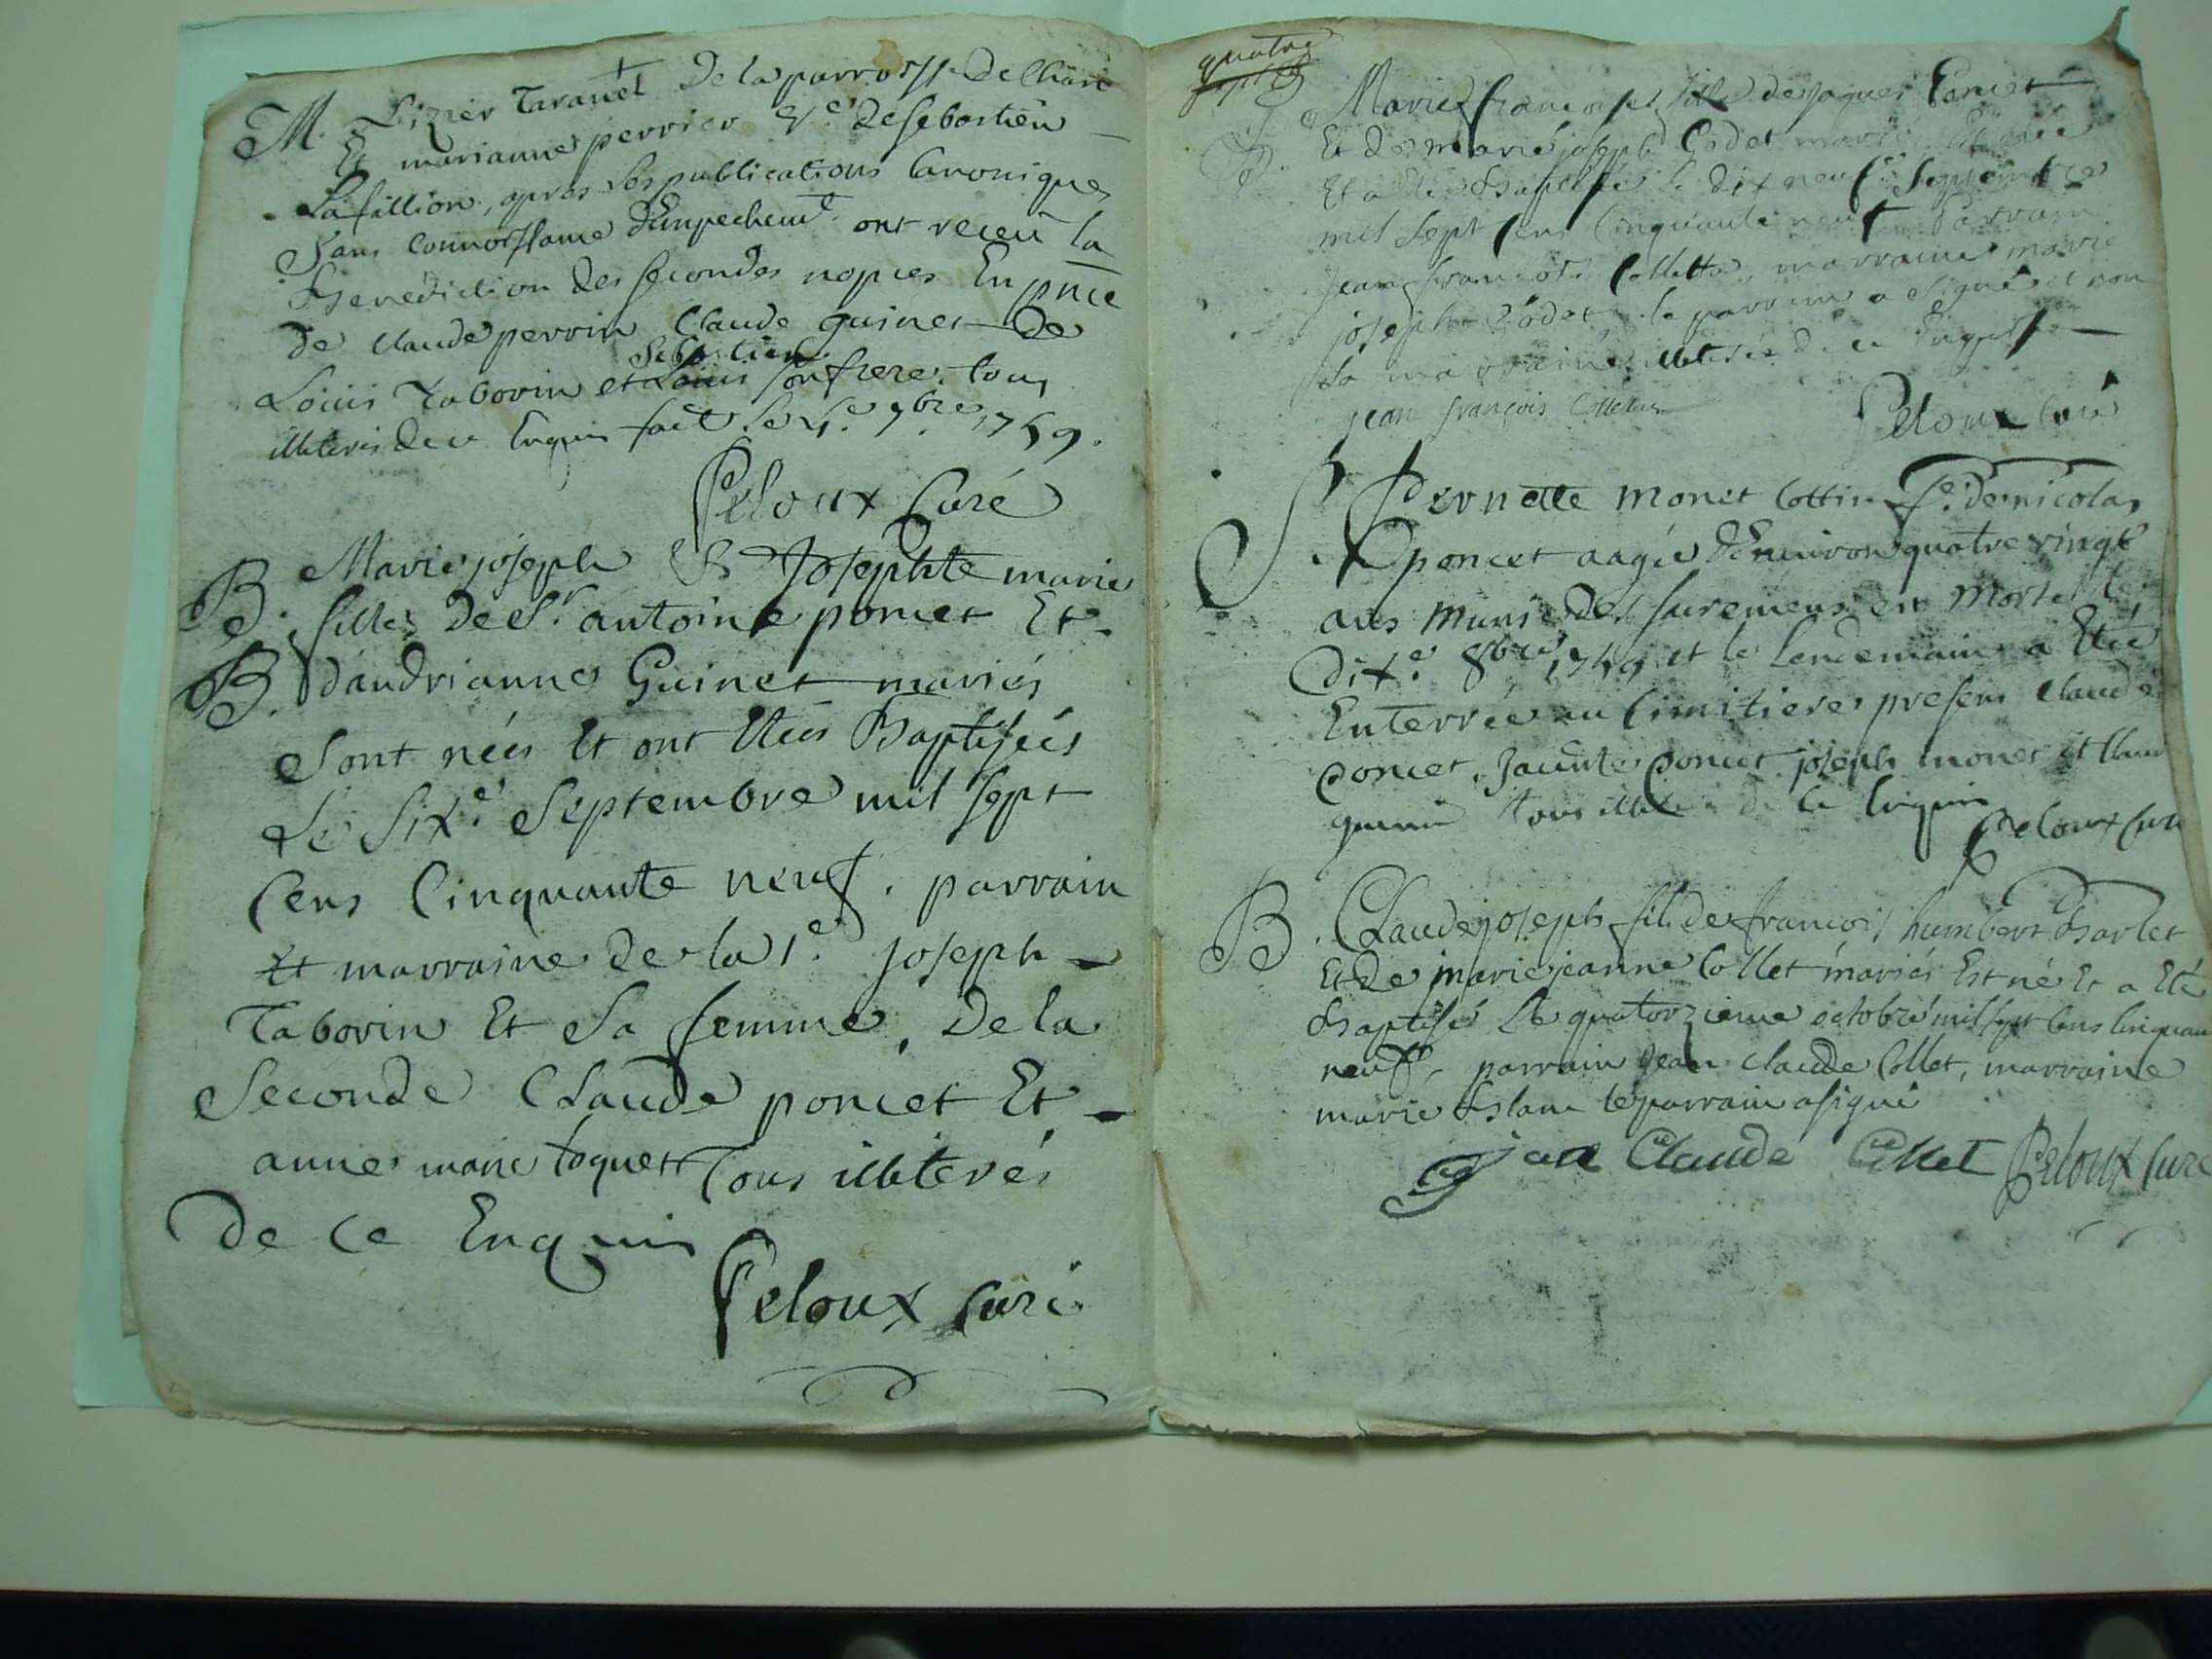 M. Lizier Taravel De la parroisse de Chari
Et marianne perrier Ve. de sebastien
Lafillion, apres les publications Canoniques
Sans connoissance d'Empechemt. ont receu la
Benediction des secondes nopces En pnce
de Claude perrin Claude guinet De
Sebastien
Louis Taborin et Louis son frere. tous
illiteres de ce Enquis fait le 4e. 7bre 1759.
Peloux Curé
B. Marie joseph & Josephte marie
filles De Sr. antoine poncet Et
B. d'andrianne Guinet mariés
Sont neés Et ont Etées Baptisées
Le Sixe. Septembre mil sept
Cens Cinquante neuf. parrain
Et marraine de la 1e. joseph
Taborin Et Sa femme, De la
Seconde Claude poncet Et
anne marie toquet Tous illiterés
De ce Enquis
Peloux Curé
quatre
Marie francoise fille de jaques Poncet
Et de marie joseph Codet
Et a été Baptisée le dix neuf Septembre
mil Sept Cens Cinquante neuf Parrain
jean francois Colletta, marraine marie
joseph Codet le parrain a Signé et non
la marraine illiterée de ce Enquise
jean françois
Peloux Curé
S. Pernette monet Cottin fe. de nicolas
poncet aagée d'Environ quatre vingt
ans munie des sacremens est Morte le
Dixe. 8bre 1759 et le Lendemain a Eté
Enterrée au Cimitiere presens Claude
poncet, poncet joseph monet et
tous de ce Enquis
Peloux Curé
B. Claude joseph fils de francois humbert Barlet
Et de marie jeanne Collet mariés Est né Et a Eté
Baptisé Le quatorzieme octobre mil sept Cens Cinquan
neuf, parrain jean Claude Collet, marraine
marie Blanc le parrain a signé
jean Claude Collet Peloux Curé